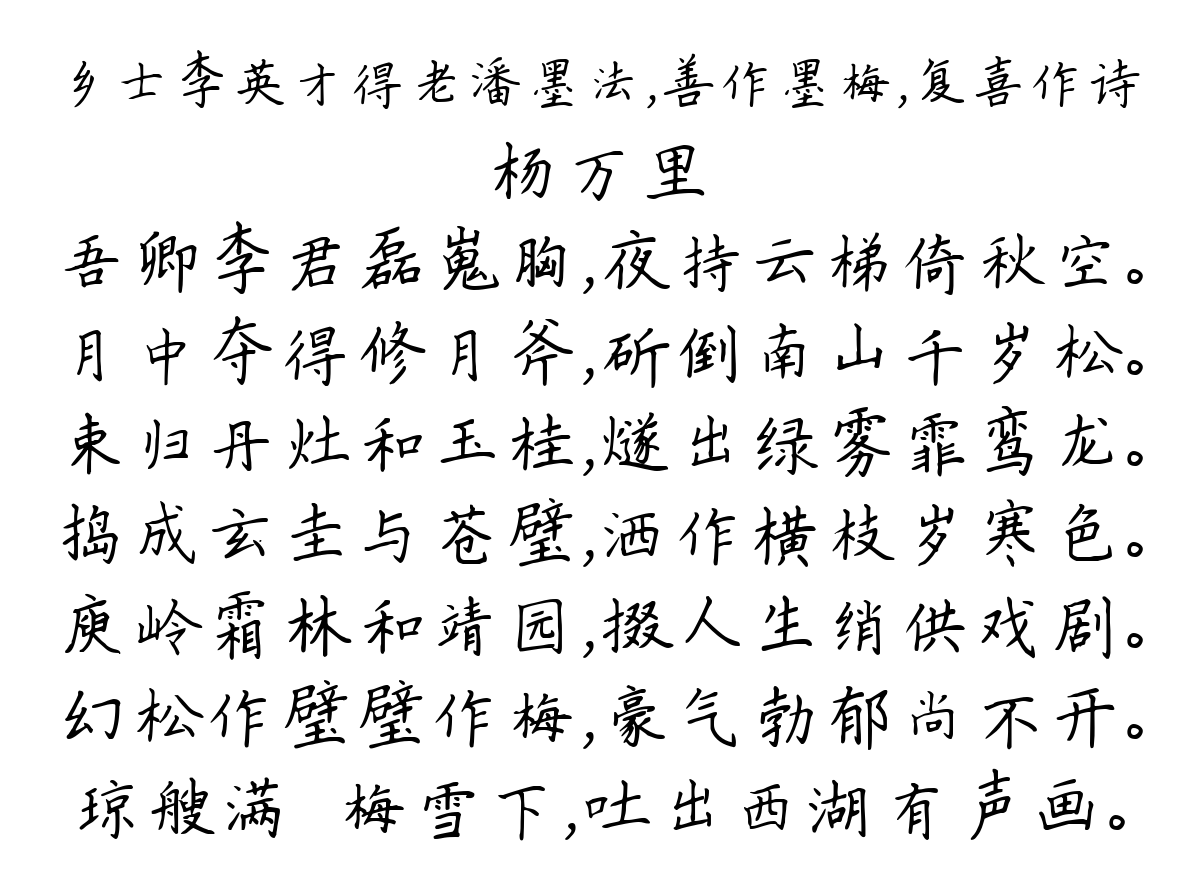 乡士李英才得老潘墨法,善作墨梅,复喜作诗
杨万里
吾卿李君磊嵬胸,夜持云梯倚秋空。
月中夺得修月斧,斫倒南山千岁松。
束归丹灶和玉桂,燧出绿雾霏鸾龙。
捣成玄圭与苍璧,洒作横枝岁寒色。
庾岭霜林和靖园,掇人生绡供戏剧。
幻松作璧璧作梅,豪气勃郁尚不开。
琼艘满 梅雪下,吐出西湖有声画。